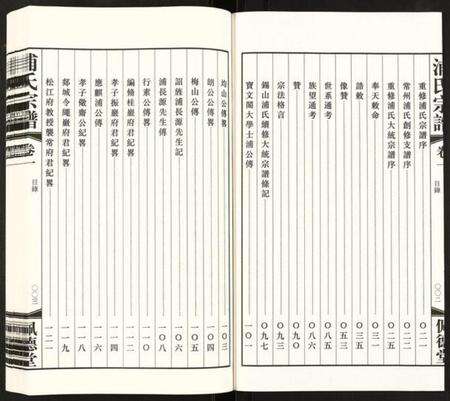 浦氏宗譜
卷一
目錄
佩德堂
重修浦氏宗譜序
常州浦氏創修支譜序
重修浦氏大統宗譜序
奉天敕命 〇三一
誥敕 〇五一
像贊 〇五三
世系通考
族望通考 〇八六
贊 〇九〇
宗法格言
錫山浦氏續修大統宗譜條記 〇九七
寶文閣大學士浦公傳 一〇一
均山公傳畧 一〇三
朗公公傳畧 一〇四
梅山公傳 一〇五
詔旌浦長源先生記 一〇六
浦長源先生傳 一〇八
行素公傳畧 一一〇
編脩桂巖府君紀畧 一一二
孝子振巖府君紀畧 一一四
應麒浦公傳 一一六
孝子儆齋公紀畧 一一七
郯城令繩巖府君紀畧 一一九
松江府教授襲常府君紀畧 一二一
浦氏宗譜
卷一
目錄
佩德堂